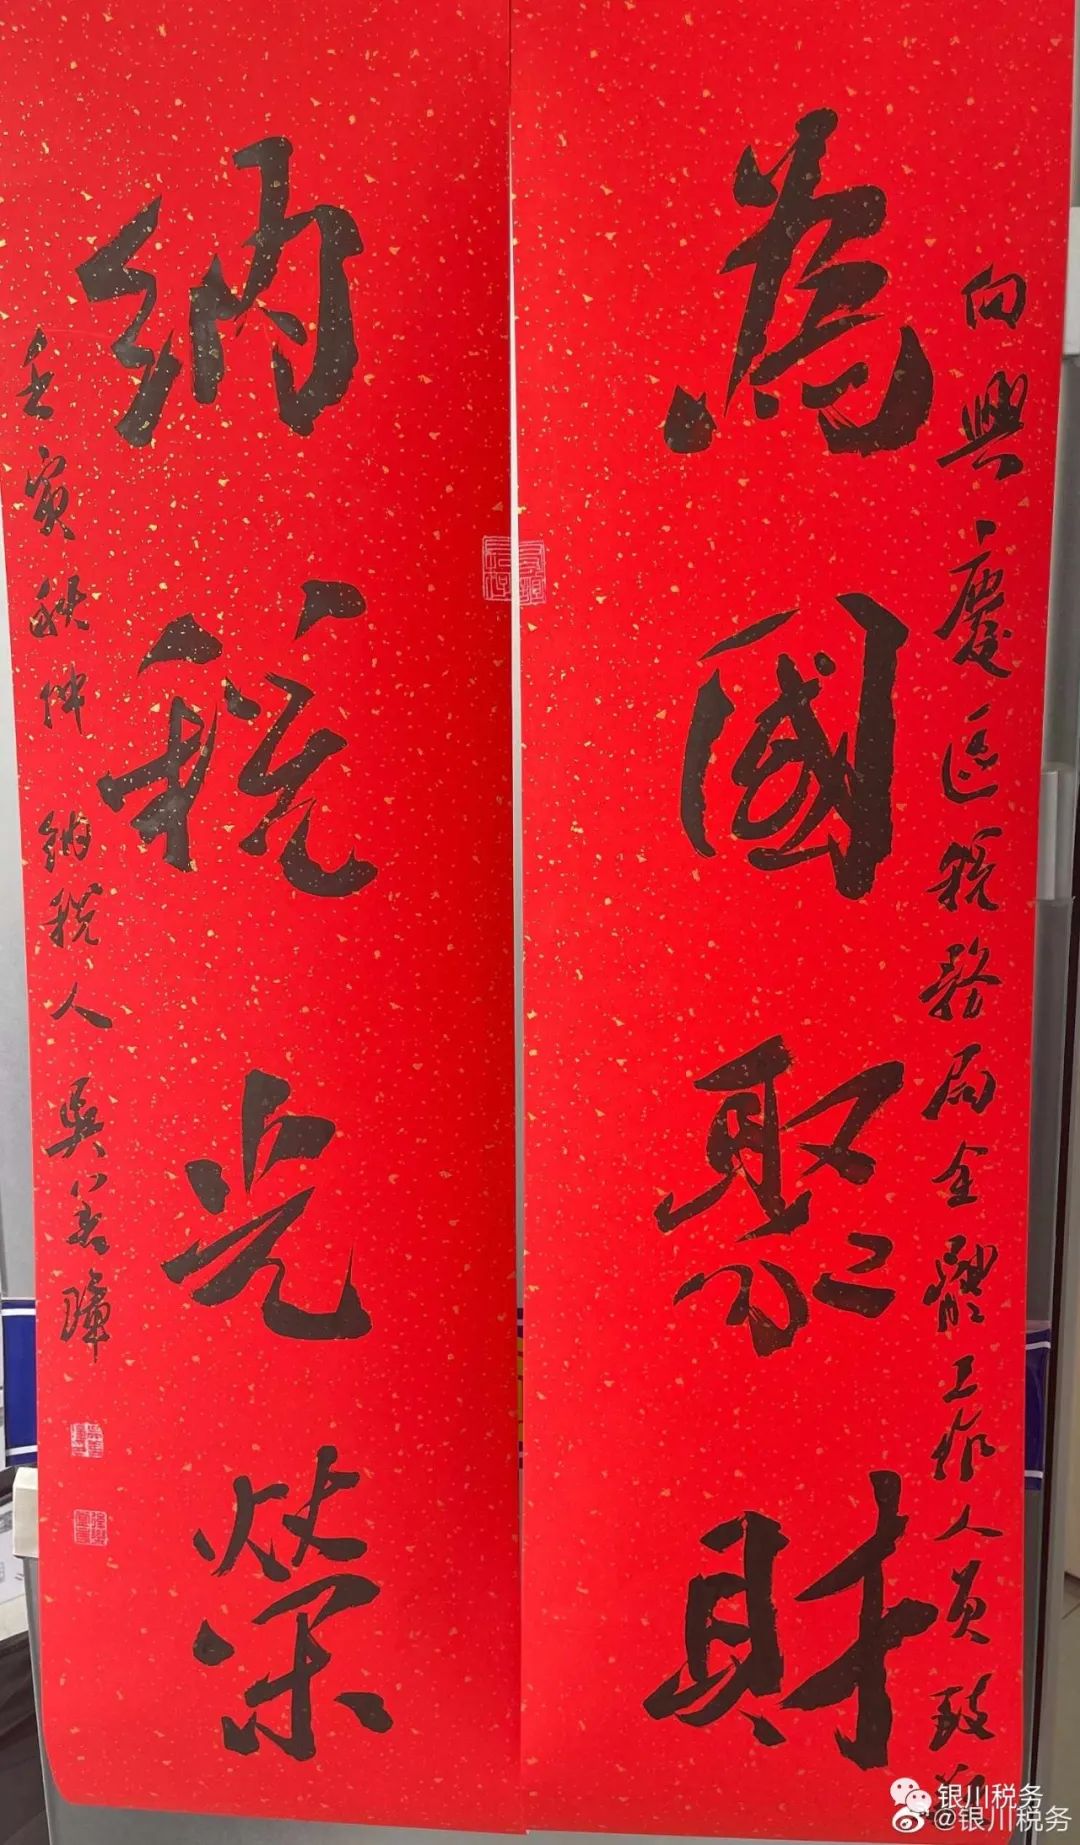 向興慶區税務局全體工作人員致敬
為國聚財
納税光榮
壬寅秋仲 納税人 吳善璋
银川税务
@银川税务